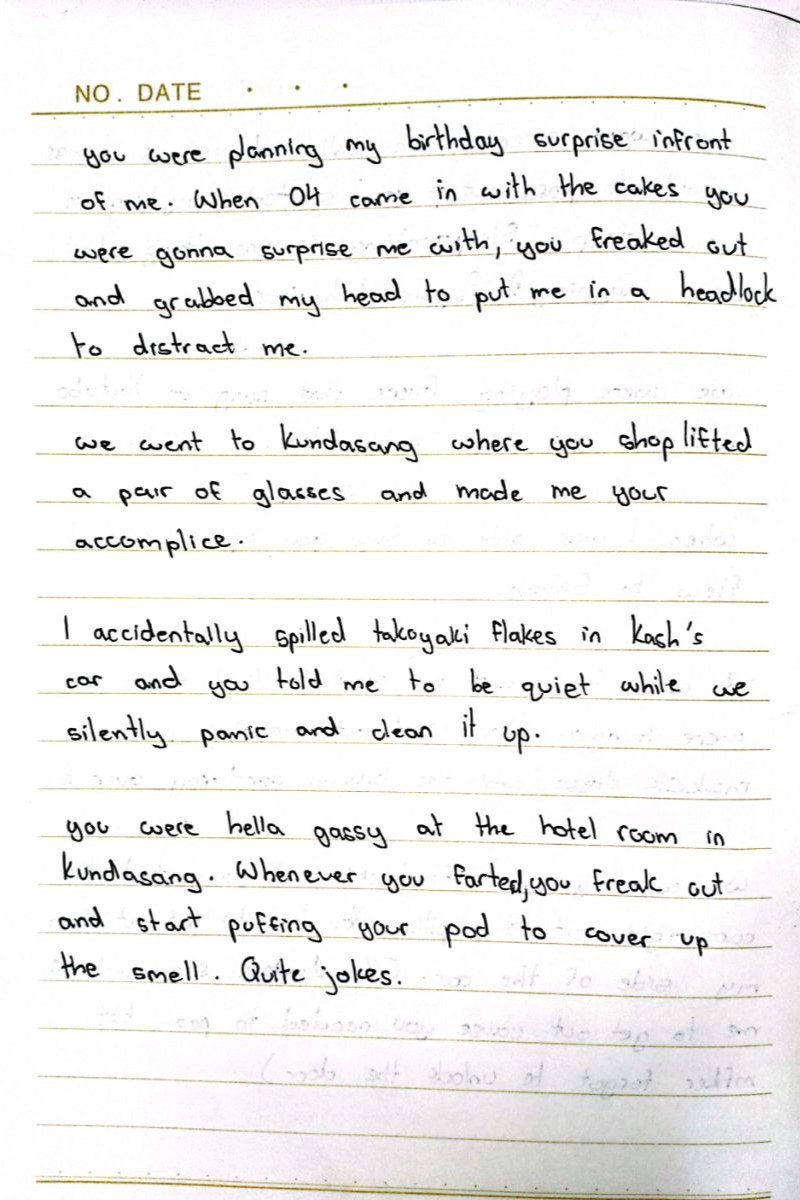 NO. DATE
you were planning my birthday surprise infront
of me. When 04 came in with the cakes you
were gonna surprise me with, you freaked out
and grabbed my head to put me in a headlock
to distract me.
we went to Kundasang where you shoplifted
a pair of glasses and made me your
accomplice.
I accidentally spilled takoyaki flakes in Kash's
car and you told me to be quiet while we
silently panic and clean it up.
you were hella gassy at the hotel room in
Kundasang. Whenever you farted, you freak out
and start puffing your pod to cover up
the smell. Quite jokes.